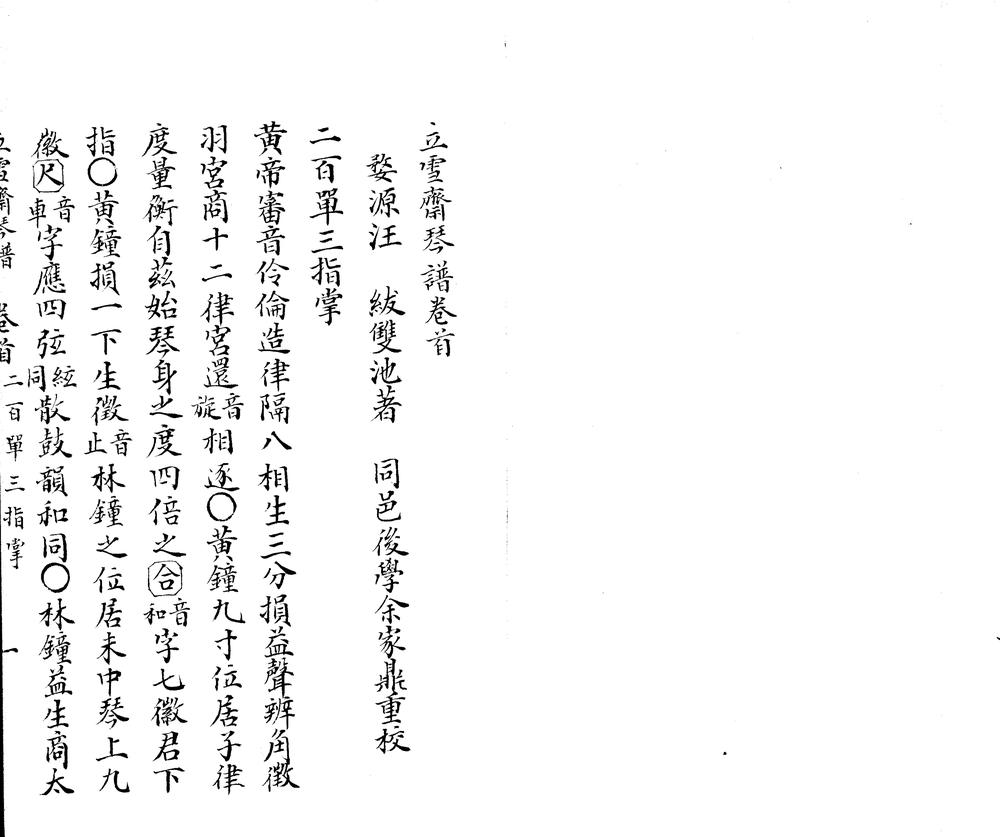 立雪齋琴譜卷首
婺源汪 紱雙池著 同邑後學余家鼎重校
二百單三指掌
黃帝審音伶倫造律隔八相生三分損益聲辨角徵
羽宮商十二律宮還音旋相逐〇黃鐘九寸位居子律
度量衡自茲始琴身之度四倍之合音和字七徽君下
指〇黃鐘損一下生徵音止林鐘之位居未中琴上九
徽尺音車字應四弦絃同散鼓韻和同〇林鐘益生商太
立雪齋琴譜 卷首 二百單三指掌 一